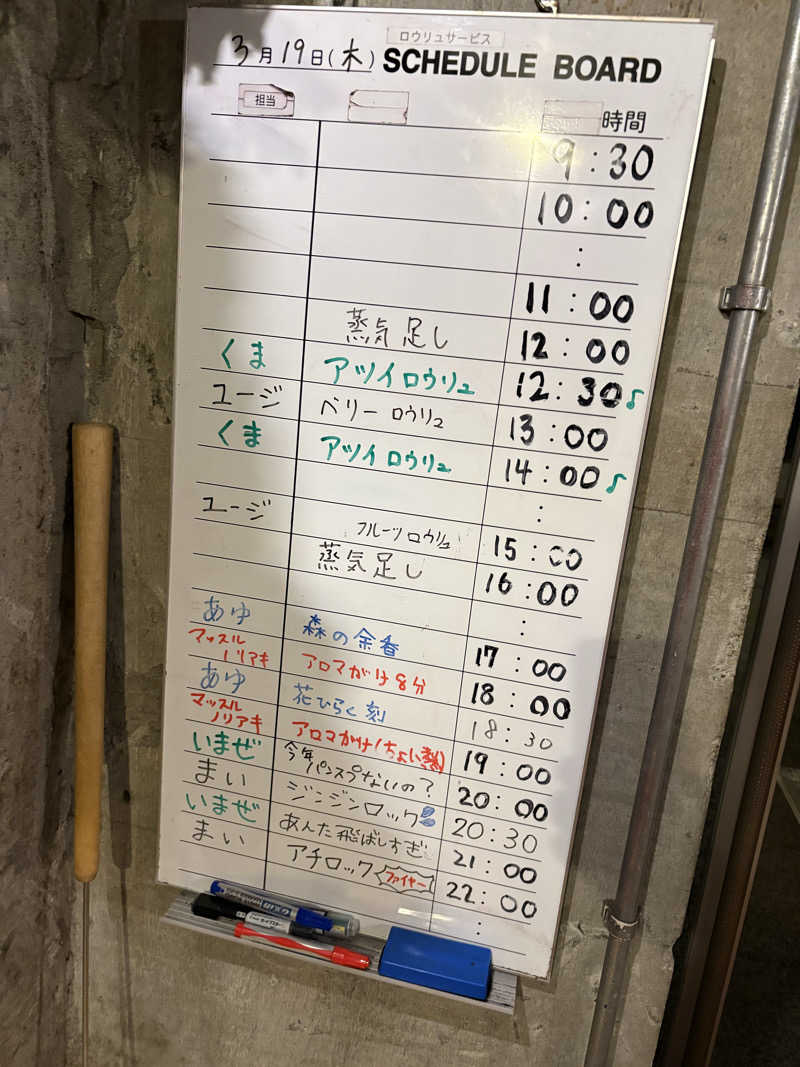 ロウリュサービス
3月19日(木) SCHEDULE BOARD
担当 時間
9:30
10:00
:
11:00
蒸気足し 12:00
くま アツイロウリュ 12:30♪
ユージ ベリーロウリュ 13:00
くま アツイロウリュ 14:00♪
:
ユージ フルーツロウリュ 15:00
蒸気足し 16:00
:
あゆ 森の余香 17:00
マッスルノリアキ アロマがけ8分 18:00
あゆ 花ひらく刻 18:30
マッスルノリアキ アロマがけ(ちょい熱) 19:00
いまぜ 今年パンスプないの? 20:00
まい ジンジンロック 20:30
いまぜ あんた飛ばしすぎ 21:00
まい アチロック ファイヤー 22:00
: